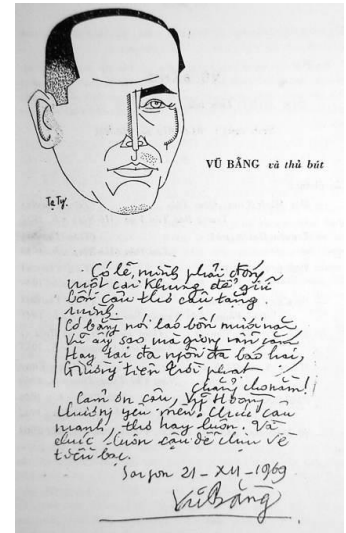 VŨ BẰNG và thủ bút
Tạ Tỵ
Có lẽ, mình phải đóng
một cái khung để giữ
bốn câu thơ cậu tặng
mình.
Có bằng nói láo bốn mươi năm
Vũ ấy sao mà giọng vẫn căm
Hay tại đa ngôn đa báo hại,
Giường tiên trời phạt
chẳng cho nằm!
Cảm ơn cậu, Vũ Hoàng
thương yêu mến. Chúc cậu
mạnh, thơ hay luôn. Và
chúc luôn cậu để chìu về
Saigon 21 - XII - 1969
Vũ Bằng